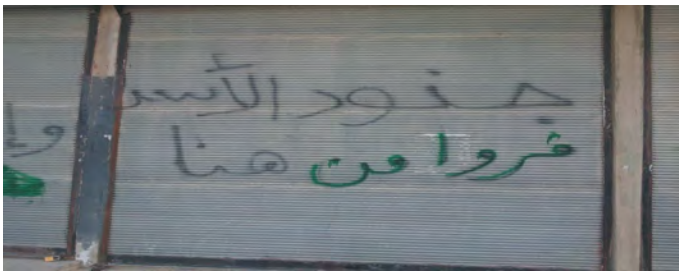 جنود الأسد
فروا من هنا
وإ